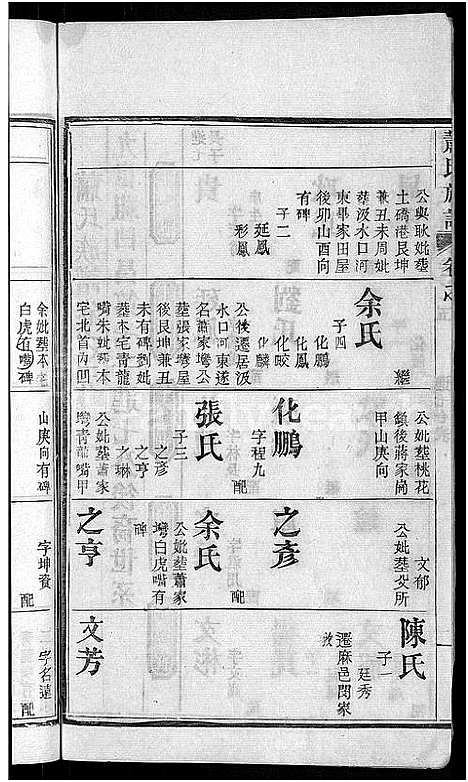 蕭氏族譜
公與耿妣塟
土礄港艮坤
兼丑未周妣
塟汲水口河
東畢家田屋
後卯山酉向
有碑
子二
延鳳
形鳳
余氏
繼
子四
化鵬
化鳳
化咬
化麟
公後遷居汲
水口河東遂
名蕭家塆公
塟張家塆屋
後艮坤兼丑
未有碑劉妣
塟本宅青龍
嘴朱妣塟本
宅北首內凹
公妣塟桃花
鎖後蔣家崗
甲山庚向
化鵬
字程九
配
張氏
子三
之彥
之亨
之琳
公妣塟蕭家
塆青龍嘴甲
山庚向有碑
文郁
公妣塟殳所
之彥
配
余氏
公妣塟蕭家
塆白虎嘴有
碑
之亨
字坤資
配
陳氏
子一
廷秀
遷麻邑閔家
文芳
字名遠
配
余妣塟本宅
白虎嘴有碑